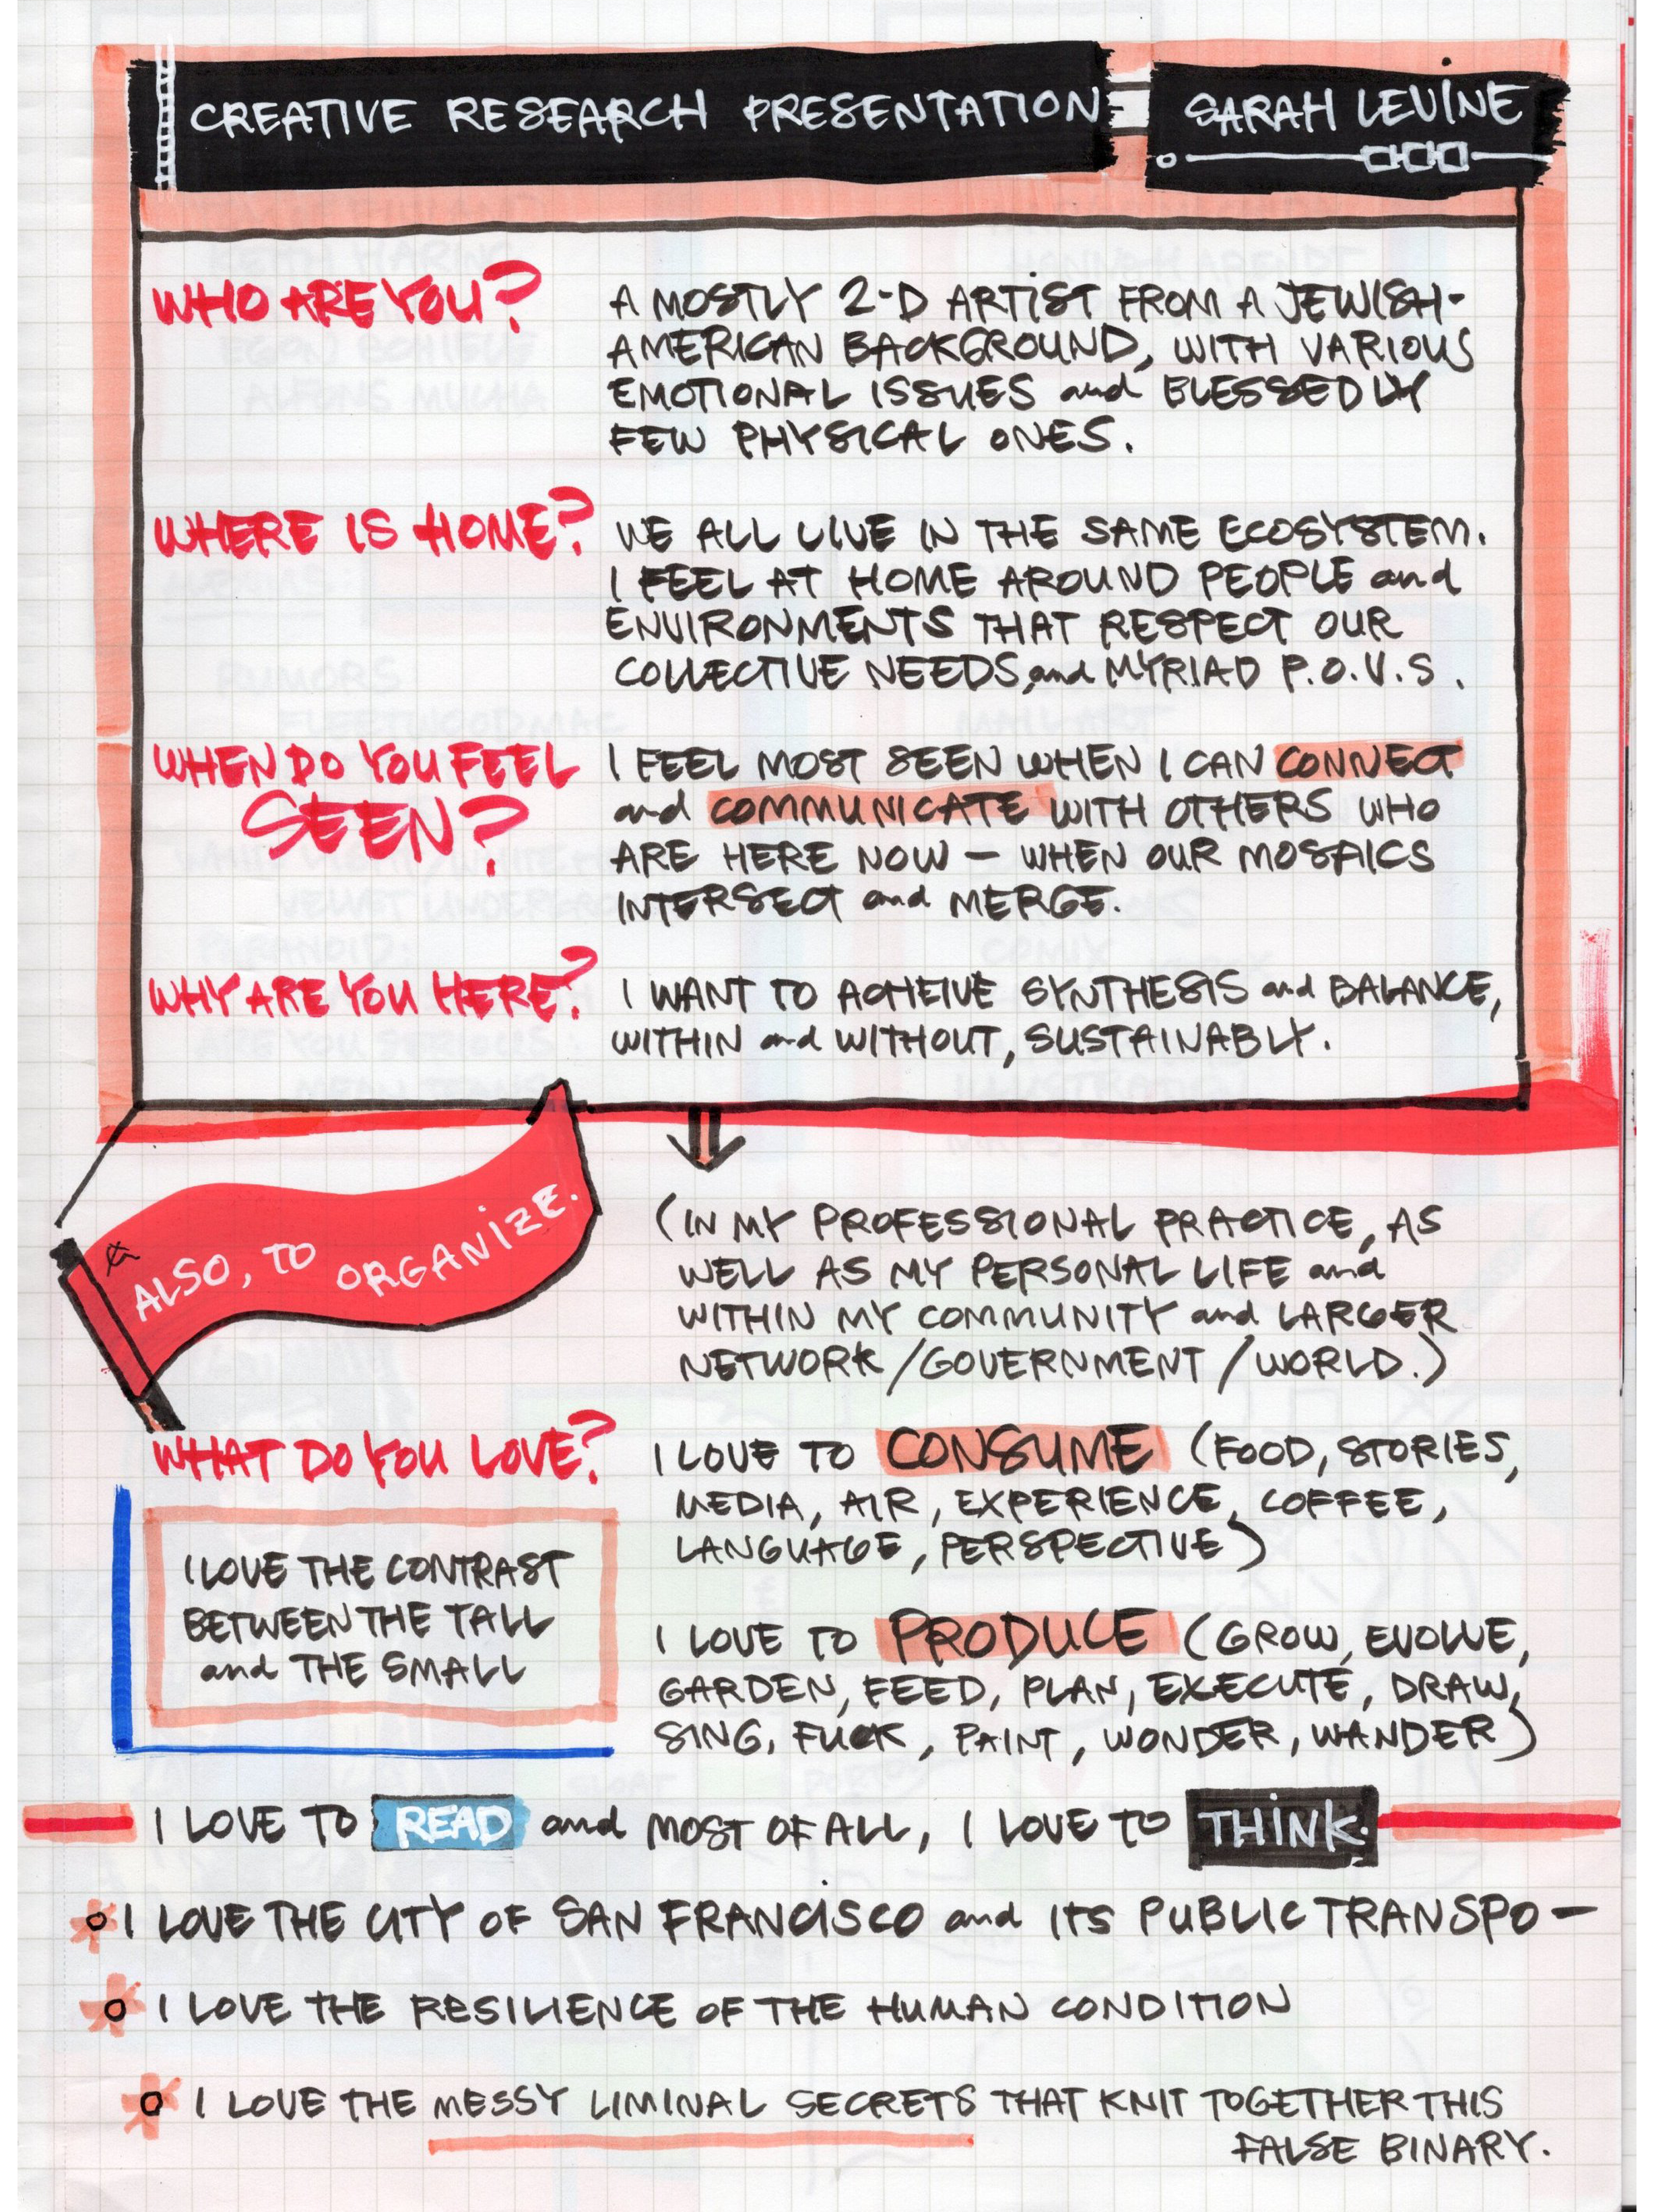 CREATIVE RESEARCH PRESENTATION
SARAH LEVINE
WHO ARE YOU?
A MOSTLY 2-D ARTIST FROM A JEWISH-
AMERICAN BACKGROUND, WITH VARIOUS
EMOTIONAL ISSUES and BLESSEDLY
FEW PHYSICAL ONES.
WHERE IS HOME?
WE ALL LIVE IN THE SAME ECOSYSTEM.
I FEEL AT HOME AROUND PEOPLE and
ENVIRONMENTS THAT RESPECT OUR
COLLECTIVE NEEDS, and MYRIAD P.O.V.S.
WHEN DO YOU FEEL
SEEN?
I FEEL MOST SEEN WHEN I CAN CONNECT
and COMMUNICATE WITH OTHERS WHO
ARE HERE NOW — WHEN OUR MOSAICS
INTERSECT and MERGE.
WHY ARE YOU HERE?
I WANT TO ACHEIVE SYNTHESIS and BALANCE,
WITHIN and WITHOUT, SUSTAINABLY.
ALSO, TO ORGANIZE.
(IN MY PROFESSIONAL PRACTICE, AS
WELL AS MY PERSONAL LIFE and
WITHIN MY COMMUNITY and LARGER
NETWORK/GOVERNMENT/WORLD.)
WHAT DO YOU LOVE?
I LOVE TO CONSUME (FOOD, STORIES,
MEDIA, AIR, EXPERIENCE, COFFEE,
LANGUAGE, PERSPECTIVE)
I LOVE THE CONTRAST
BETWEEN THE TALL
and THE SMALL
I LOVE TO PRODUCE (GROW, EVOLVE,
GARDEN, FEED, PLAN, EXECUTE, DRAW,
SING, FUCK, PAINT, WONDER, WANDER)
I LOVE TO READ and MOST OF ALL, I LOVE TO THINK.
I LOVE THE CITY OF SAN FRANCISCO and ITS PUBLIC TRANSPO —
I LOVE THE RESILIENCE OF THE HUMAN CONDITION
I LOVE THE MESSY LIMINAL SECRETS THAT KNIT TOGETHER THIS
FALSE BINARY.